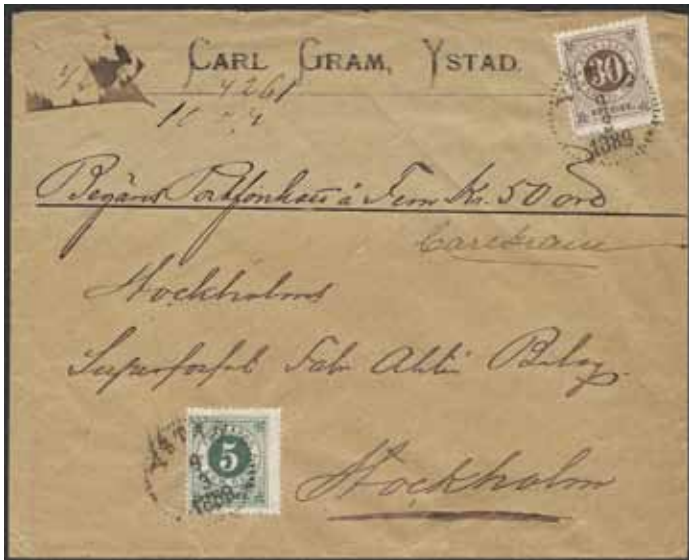 CARL GRAM, YSTAD.
4261
30
YSTAD
9
1889
Begäres Postförskott å Fem Kr. 50 öre
Carl Gram
Stockholms
Superfosfat Fabr Aktie Bolag
YSTAD
5
9
3
1889
Stockholm